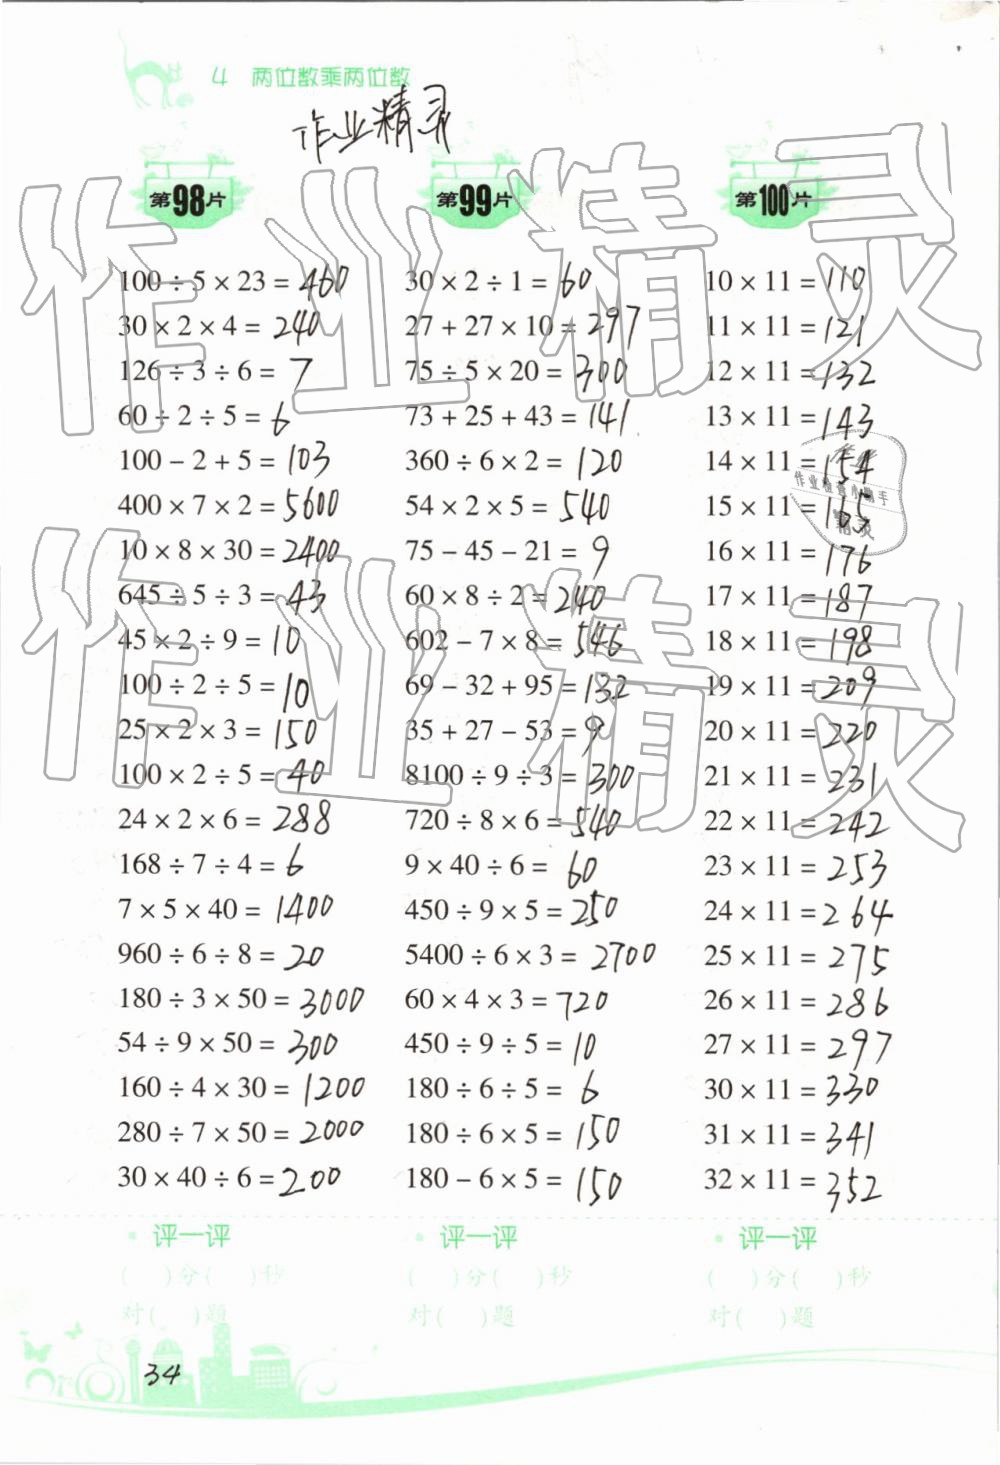 4 两位数乘两位数
作业精灵
第98片
100÷5×23=460
30×2×4=240
126÷3÷6=7
60÷2÷5=6
100-2+5=103
400×7×2=5600
10×8×30=2400
645÷5÷3=43
45×2÷9=10
100÷2÷5=10
25×2×3=150
100×2÷5=40
24×2×6=288
168÷7÷4=6
7×5×40=1400
960÷6÷8=20
180÷3×50=3000
54÷9×50=300
160÷4×30=1200
280÷7×50=2000
30×40÷6=200
·评一评
( )分( )秒
对( )题
第99片
30×2÷1=60
27+27×10=297
75÷5×20=300
73+25+43=141
360÷6×2=120
54×2×5=540
75-45-21=9
60×8÷2=240
602-7×8=546
69-32+95=132
35+27-53=9
8100÷9÷3=300
720÷8×6=540
9×40÷6=60
450÷9×5=250
5400÷6×3=2700
60×4×3=720
450÷9÷5=10
180÷6÷5=6
180÷6×5=150
180-6×5=150
·评一评
( )分( )秒
对( )题
第100片
10×11=110
11×11=121
12×11=132
13×11=143
14×11=154
15×11=165
16×11=176
17×11=187
18×11=198
19×11=209
20×11=220
21×11=231
22×11=242
23×11=253
24×11=264
25×11=275
26×11=286
27×11=297
30×11=330
31×11=341
32×11=352
·评一评
( )分( )秒
对( )题
34
作业精灵
作业精灵